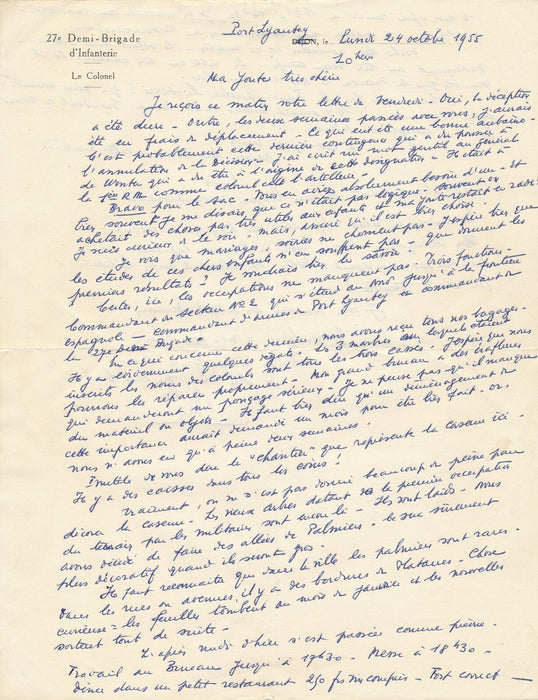 27e Demi-Brigade
d'Infanterie
Le Colonel
Port Lyautey
DIJON, le Lundi 24 octobre 1955
20 heures
Ma Toute très chère
Je reçois ce matin votre lettre de Vendredi - Oui, la déception
a été dure - Outre, les deux semaines passées avec vous, j'aurais
été en frais de déplacement - Ce qui eut été une bonne aubaine -
C'est probablement cette dernière contingence qui a du pousser à
l'annulation de la décision - J'ai écrit un mot gentil au général
de qui a du être à l'origine de cette désignation - Il était à
la R.M. comme colonel de l'artillerie -
Bravo pour le sac. Vous en aviez absolument besoin d'un - Et
très souvent je me disais que ce n'était pas logique - Souvent en
achetant des choses pas très utiles aux enfants et ma Toute restait en rade!
Je suis curieux de le voir - mais, assuré qu'il est très chose.
Je vois que mariages, soirées ne chôment pas - J'espère bien que
les études de ces chers enfants n'en souffrent pas - que donnent les
premiers résultats? Je voudrais bien le savoir -
Certes, ici, les occupations ne manquent pas. Trois fonctions -
Commandant du Secteur No 2 qui s'étend au Nord jusqu'à la frontière
espagnole - commandant d'armes de Port Lyautey et commandant de
la 27e Demi Brigade -
En ce qui concerne cette dernière, nous avons reçu tous nos bagages.
Il y a évidemment quelques dégats - Les 3 marbres sur lesquels étaient
inscrits les noms des colonels sont tous les trois cassés - J'espère que nous
pourrons les réparer proprement - Mon grand bureau a des éraflures
qui demanderont un ponçage sérieux - Je ne pense pas qu'il manque
du matériel ou objets - Il faut bien dire qu'un déménagement de
cette importance aurait demandé un mois pour être bien fait - or,
nous n'avons eu qu'à peine deux semaines.
Inutile de vous dire le "chantier" que représente la caserne ici -
Il y a des caisses dans tous les coins!
Vraiment, on ne s'est pas donné beaucoup de peine pour
décorer la caserne. Les vieux arbres datant de la première occupation
du terrain par les militaires sont encore là - Ils sont laids - Nous
avons décidé de faire des allées de Palmiers - ce sera sûrement
plus décoratif quand ils seront gros.
Il faut reconnaître que dans la ville les palmiers sont rares -
Dans les rues ou avenues, il y a des bordures de Platanes - Chose
curieuse - les feuilles tombent au mois de janvier et les nouvelles
sortent tout de suite -
L'après midi d'hier s'est passée comme prévue -
Travail au Bureau jusqu'à 17H30 - Messe à 18H30 -
Dîner dans un petit restaurant 250 frs vin compris - Fort correct -